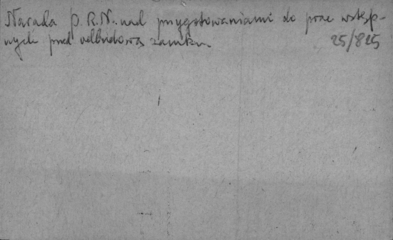 Narada P.R.N. nad przygotowaniami do prac wstęp-
nych przed odbudową zamku.
25/825